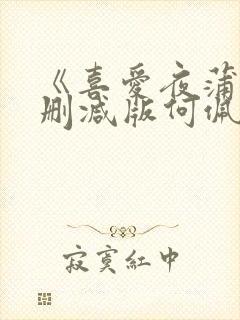 《喜爱夜蒲
删减版何佩
寂寞红中